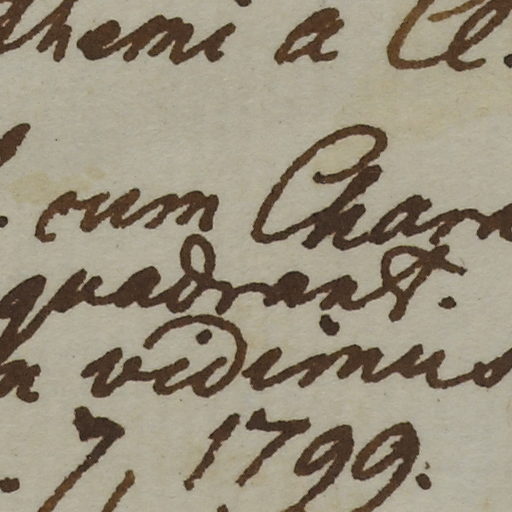 themi a Cl.
. cum Chara
quadrant.
a vidimus
. 7, 1799.